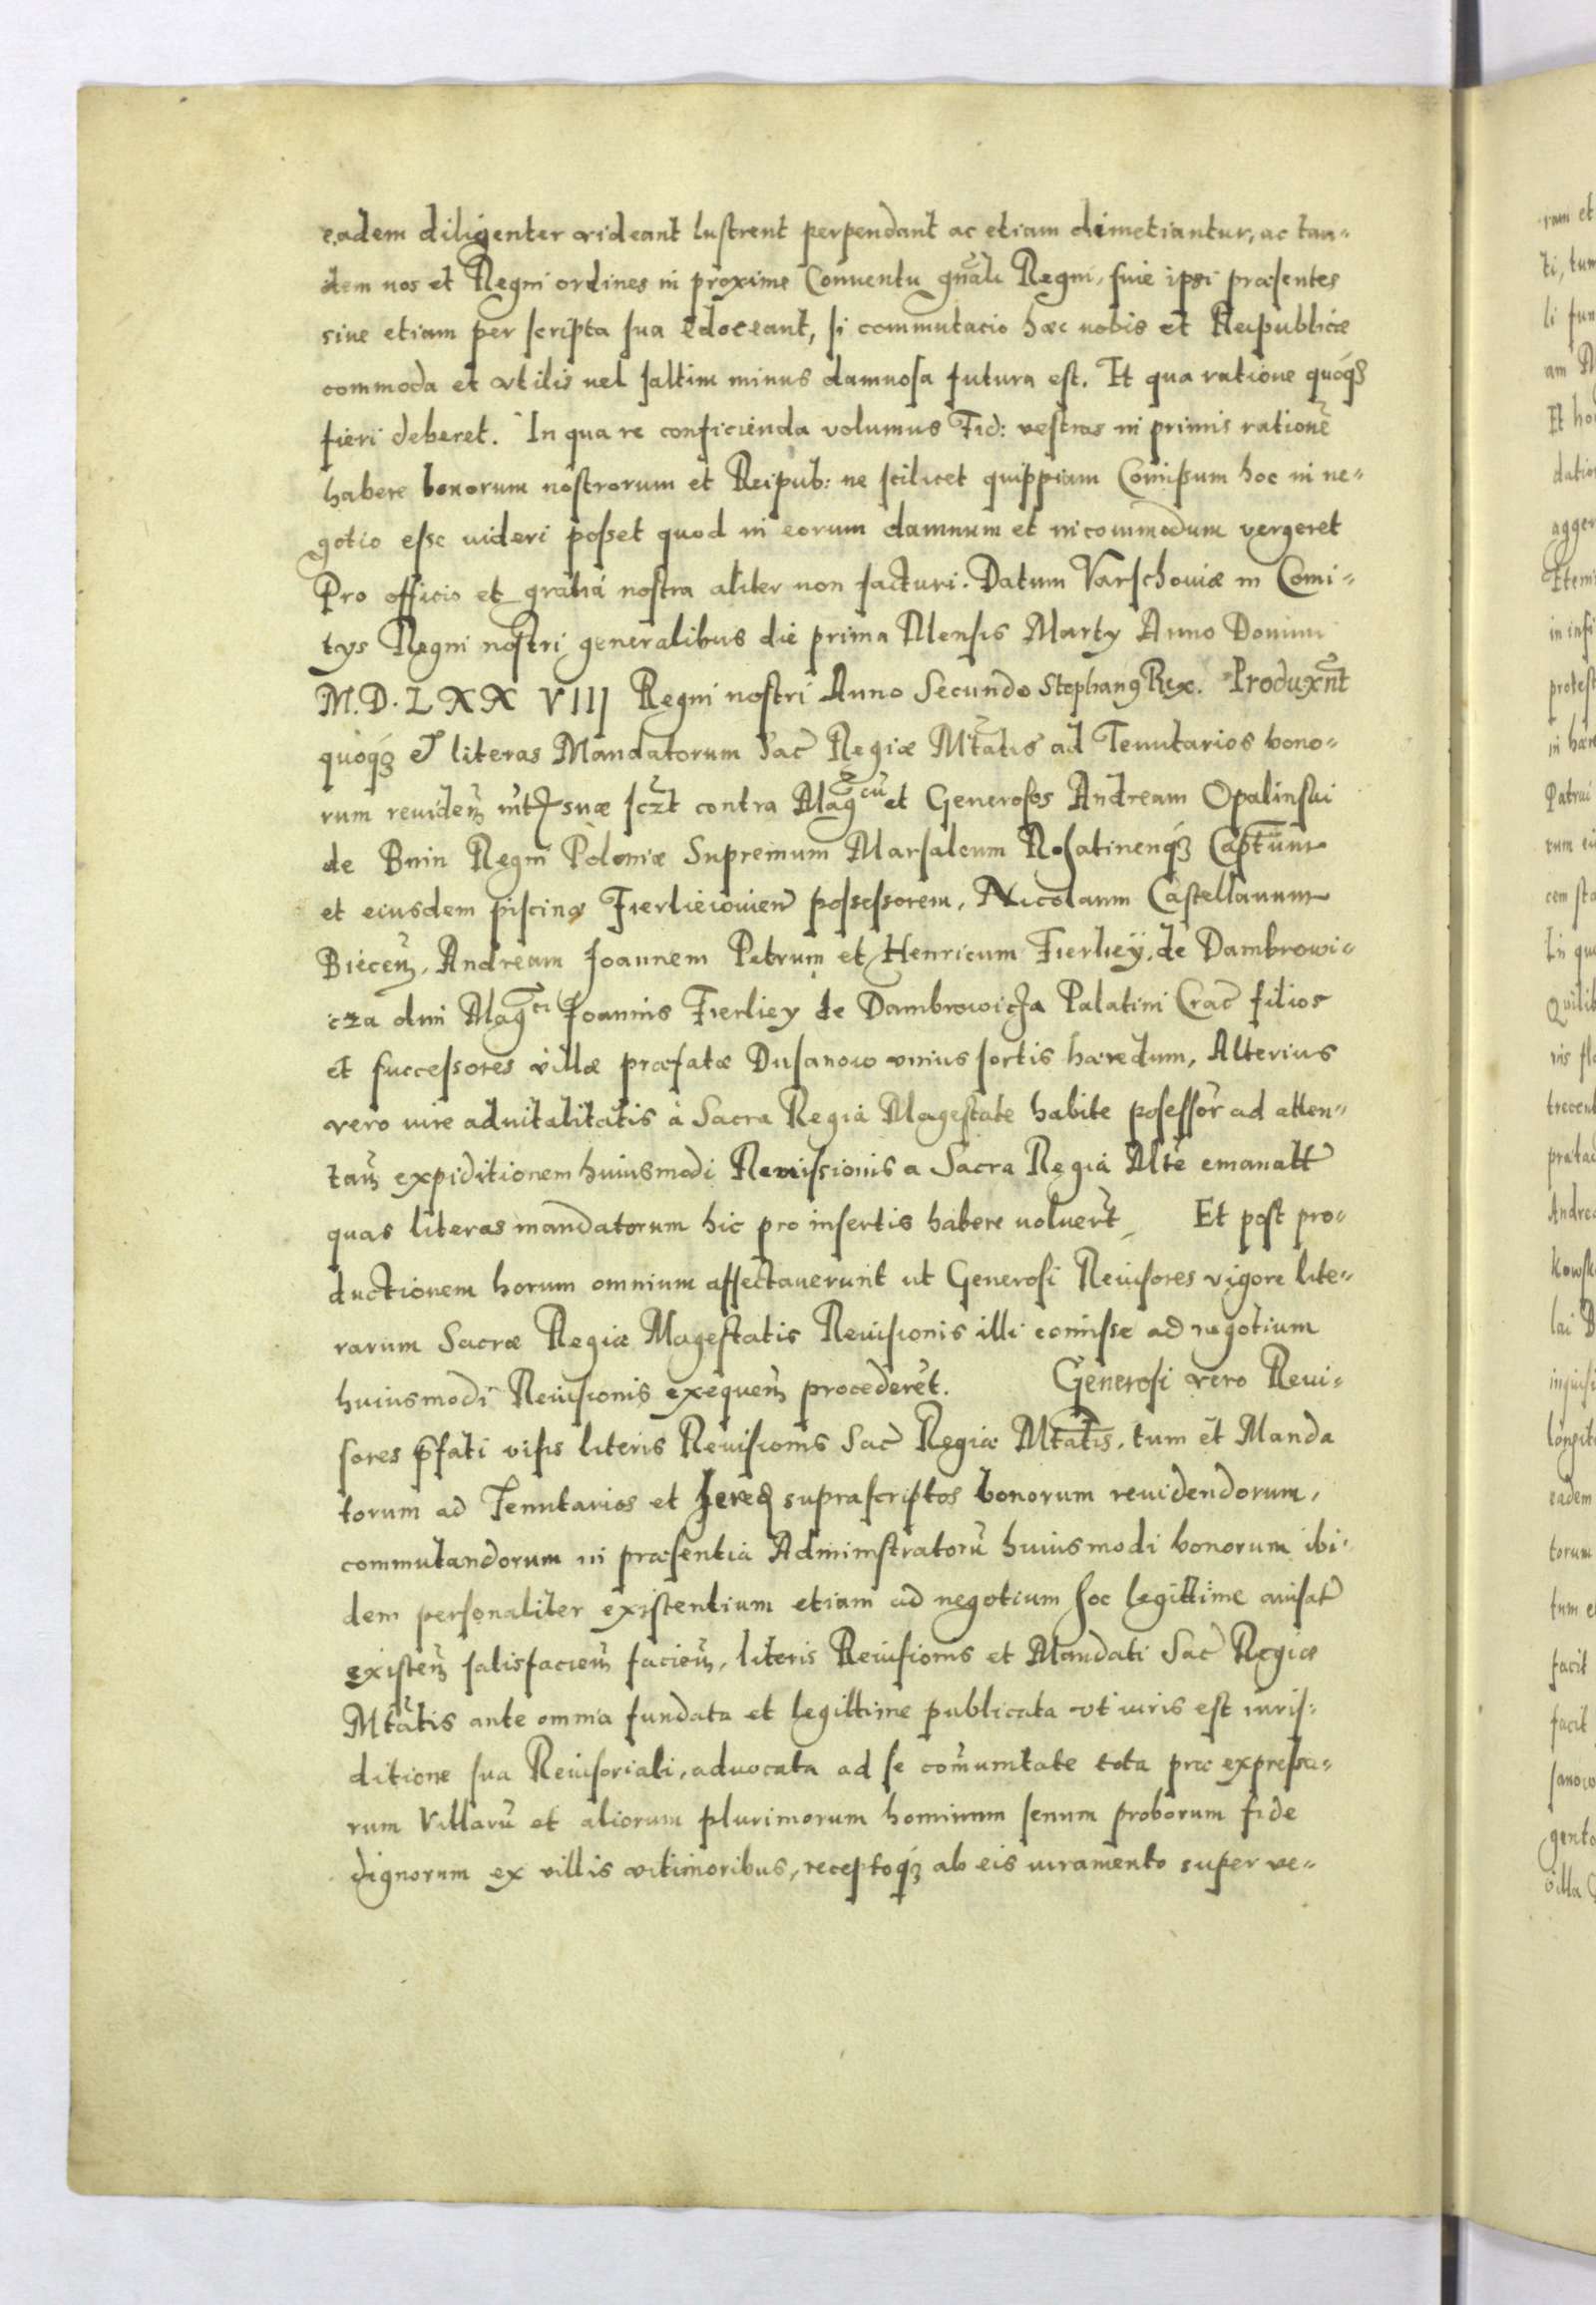 eadem diligenter videant lustrent perpendant ac etiam dimetiantur, ac tan=
dem nos et Regni ordines in proximo Conventu gñali Regni, siue ipsi præsentes
siue etiam per scripta sua edoceant, si commutacio hæc nobis et Reipublicæ
commoda et vtilis uel saltim minus damnosa futura est. Et qua ratione quoq̃
fieri deberet. In qua re conficienda volumus Fid: vestras in primis rationẽ
habere bonorum nostrorum et Reipub: ne scilicet quippiam Comissum hoc in ne=
gotio esse uideri posset quod in eorum damnum et incommodum vergeret
Pro officio et gratia nostra aliter non facturi. Datum Varschouiæ in Comi=
tys Regni nostri generalibus die prima Mensis Marty Anno Domini
M.D.LXXVIII Regni nostri Anno Secundo Stephanꝰ Rex. Produxnt̃
quoqꝫ et literas Mandatorum Sac̃ Regiæ Mtatis ad Tenutarios bono=
rum reuideñ suæ sczt contra Magcũ et Generosos Andream Opalinski
de Bnin Regni Poloniæ Supremum Marsalcum Rohatinenqꝫ Captũm
et eiusdem piscinæ Fierlieiouień possessorem, Nicolaum Castellanum
Bieceñ, Andream Joannem Petrum et Henricum Fierliey, de Dambrowi=
cza olim Magci Joannis Fierliey de Dambrowicza Palatini Crac̃ filios
et successores villæ præfatæ Dusanow vnius sortis hæredum, Alterius
vero iure aduitalitatis à Sacra Regia Magestate habite posessor̃ ad atten=
tañ expiditionem huiusmodi Reuissionis a Sacra Regia Mte emanatt̃
quas literas mandatorum hic pro insertis habere uoluer̃t Et post pro=
ductionem horum omnium affectauerunt ut Generosi Reuisores vigore lite=
rarum Sacræ Regiæ Magestatis Reuisionis illi comisse ad negotium
huiusmodi Reuisionis exequeñ procederẽt. Generosi vero Reui=
sores p̃fati visis literis Reuisionis Sac̃ Regiæ Mtatis, tum et Manda
torum ad Tenutarios et suprascriptos bonorum reuidendorum,
commutandorum in præsentia Administratorũ huiusmodi bonorum ibi=
dem personaliter existentium etiam ad negotium hoc legittime auisat̃
existeñ satisfacieñ facieñ, literis Reuisionis et Mandati Sac̃ Regiæ
Mtatis ante omnia fundata et legittime publicata vt iuris est iuris=
ditione sua Reuisoriali, aduocata ad se com̃unitate tota præ expressa=
rum Villarũ et aliorum plurimorum hominum senum proborum fide
dignorum ex villis vitinioribus, receptoqꝫ ab eis iuramento super ve=